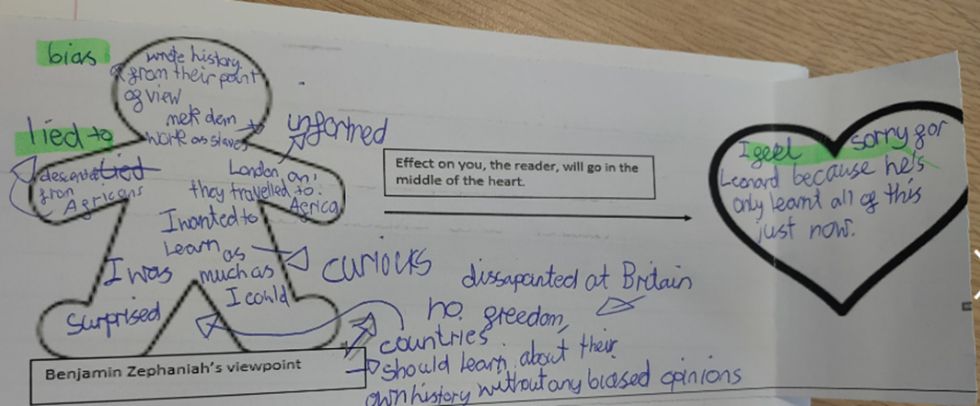 bias
wrote history
from their point
of view
mek dem
work as slaves
lied to
informed
lied
from
Africans
London, an'
they travelled to
Africa
I wanted to
learn as
much as
I could
curious
I was
surprised
Benjamin Zephaniah's viewpoint
Effect on you, the reader, will go in the
middle of the heart.
dissapointed at Britain
no freedom,
countries
should learn about their
own history without any biased opinions
I feel sorry for
Leonard because he's
only learnt all of this
just now.